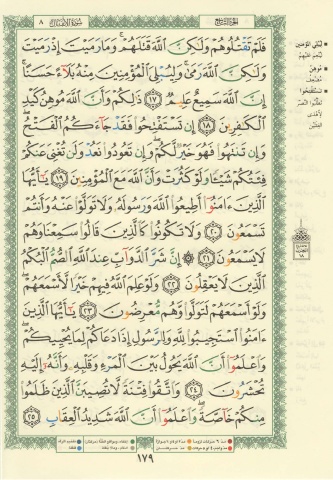 الجزء التاسع
سورة الأنفال ٨
فَلَمْ تَقْتُلُوهُمْ وَلَٰكِنَّ ٱللَّهَ قَتَلَهُمْ ۚ وَمَا رَمَيْتَ إِذْ رَمَيْتَ
وَلَٰكِنَّ ٱللَّهَ رَمَىٰ ۚ وَلِيُبْلِىَ ٱلْمُؤْمِنِينَ مِنْهُ بَلَآءً حَسَنًا ۚ
إِنَّ ٱللَّهَ سَمِيعٌ عَلِيمٌ ١٧ ذَٰلِكُمْ وَأَنَّ ٱللَّهَ مُوهِنُ كَيْدِ
ٱلْكَٰفِرِينَ ١٨ إِن تَسْتَفْتِحُوا۟ فَقَدْ جَآءَكُمُ ٱلْفَتْحُ ۖ
وَإِن تَنتَهُوا۟ فَهُوَ خَيْرٌ لَّكُمْ ۖ وَإِن تَعُودُوا۟ نَعُدْ وَلَن تُغْنِىَ عَنكُمْ
فِئَتُكُمْ شَيْـًٔا وَلَوْ كَثُرَتْ وَأَنَّ ٱللَّهَ مَعَ ٱلْمُؤْمِنِينَ ١٩ يَٰٓأَيُّهَا
ٱلَّذِينَ ءَامَنُوٓا۟ أَطِيعُوا۟ ٱللَّهَ وَرَسُولَهُۥ وَلَا تَوَلَّوْا۟ عَنْهُ وَأَنتُمْ
تَسْمَعُونَ ٢٠ وَلَا تَكُونُوا۟ كَٱلَّذِينَ قَالُوا۟ سَمِعْنَا وَهُمْ
لَا يَسْمَعُونَ ٢١ ۞ إِنَّ شَرَّ ٱلدَّوَآبِّ عِندَ ٱللَّهِ ٱلصُّمُّ ٱلْبُكْمُ
ٱلَّذِينَ لَا يَعْقِلُونَ ٢٢ وَلَوْ عَلِمَ ٱللَّهُ فِيهِمْ خَيْرًا لَّأَسْمَعَهُمْ ۖ
وَلَوْ أَسْمَعَهُمْ لَتَوَلَّوا۟ وَّهُم مُّعْرِضُونَ ٢٣ يَٰٓأَيُّهَا ٱلَّذِينَ
ءَامَنُوا۟ ٱسْتَجِيبُوا۟ لِلَّهِ وَلِلرَّسُولِ إِذَا دَعَاكُمْ لِمَا يُحْيِيكُمْ ۖ
وَٱعْلَمُوٓا۟ أَنَّ ٱللَّهَ يَحُولُ بَيْنَ ٱلْمَرْءِ وَقَلْبِهِۦ وَأَنَّهُۥٓ إِلَيْهِ
تُحْشَرُونَ ٢٤ وَٱتَّقُوا۟ فِتْنَةً لَّا تُصِيبَنَّ ٱلَّذِينَ ظَلَمُوا۟
مِنكُمْ خَآصَّةً ۖ وَٱعْلَمُوٓا۟ أَنَّ ٱللَّهَ شَدِيدُ ٱلْعِقَابِ ٢٥
ليبلي المؤمنين
موهن
تستفتحوا
١٧٩